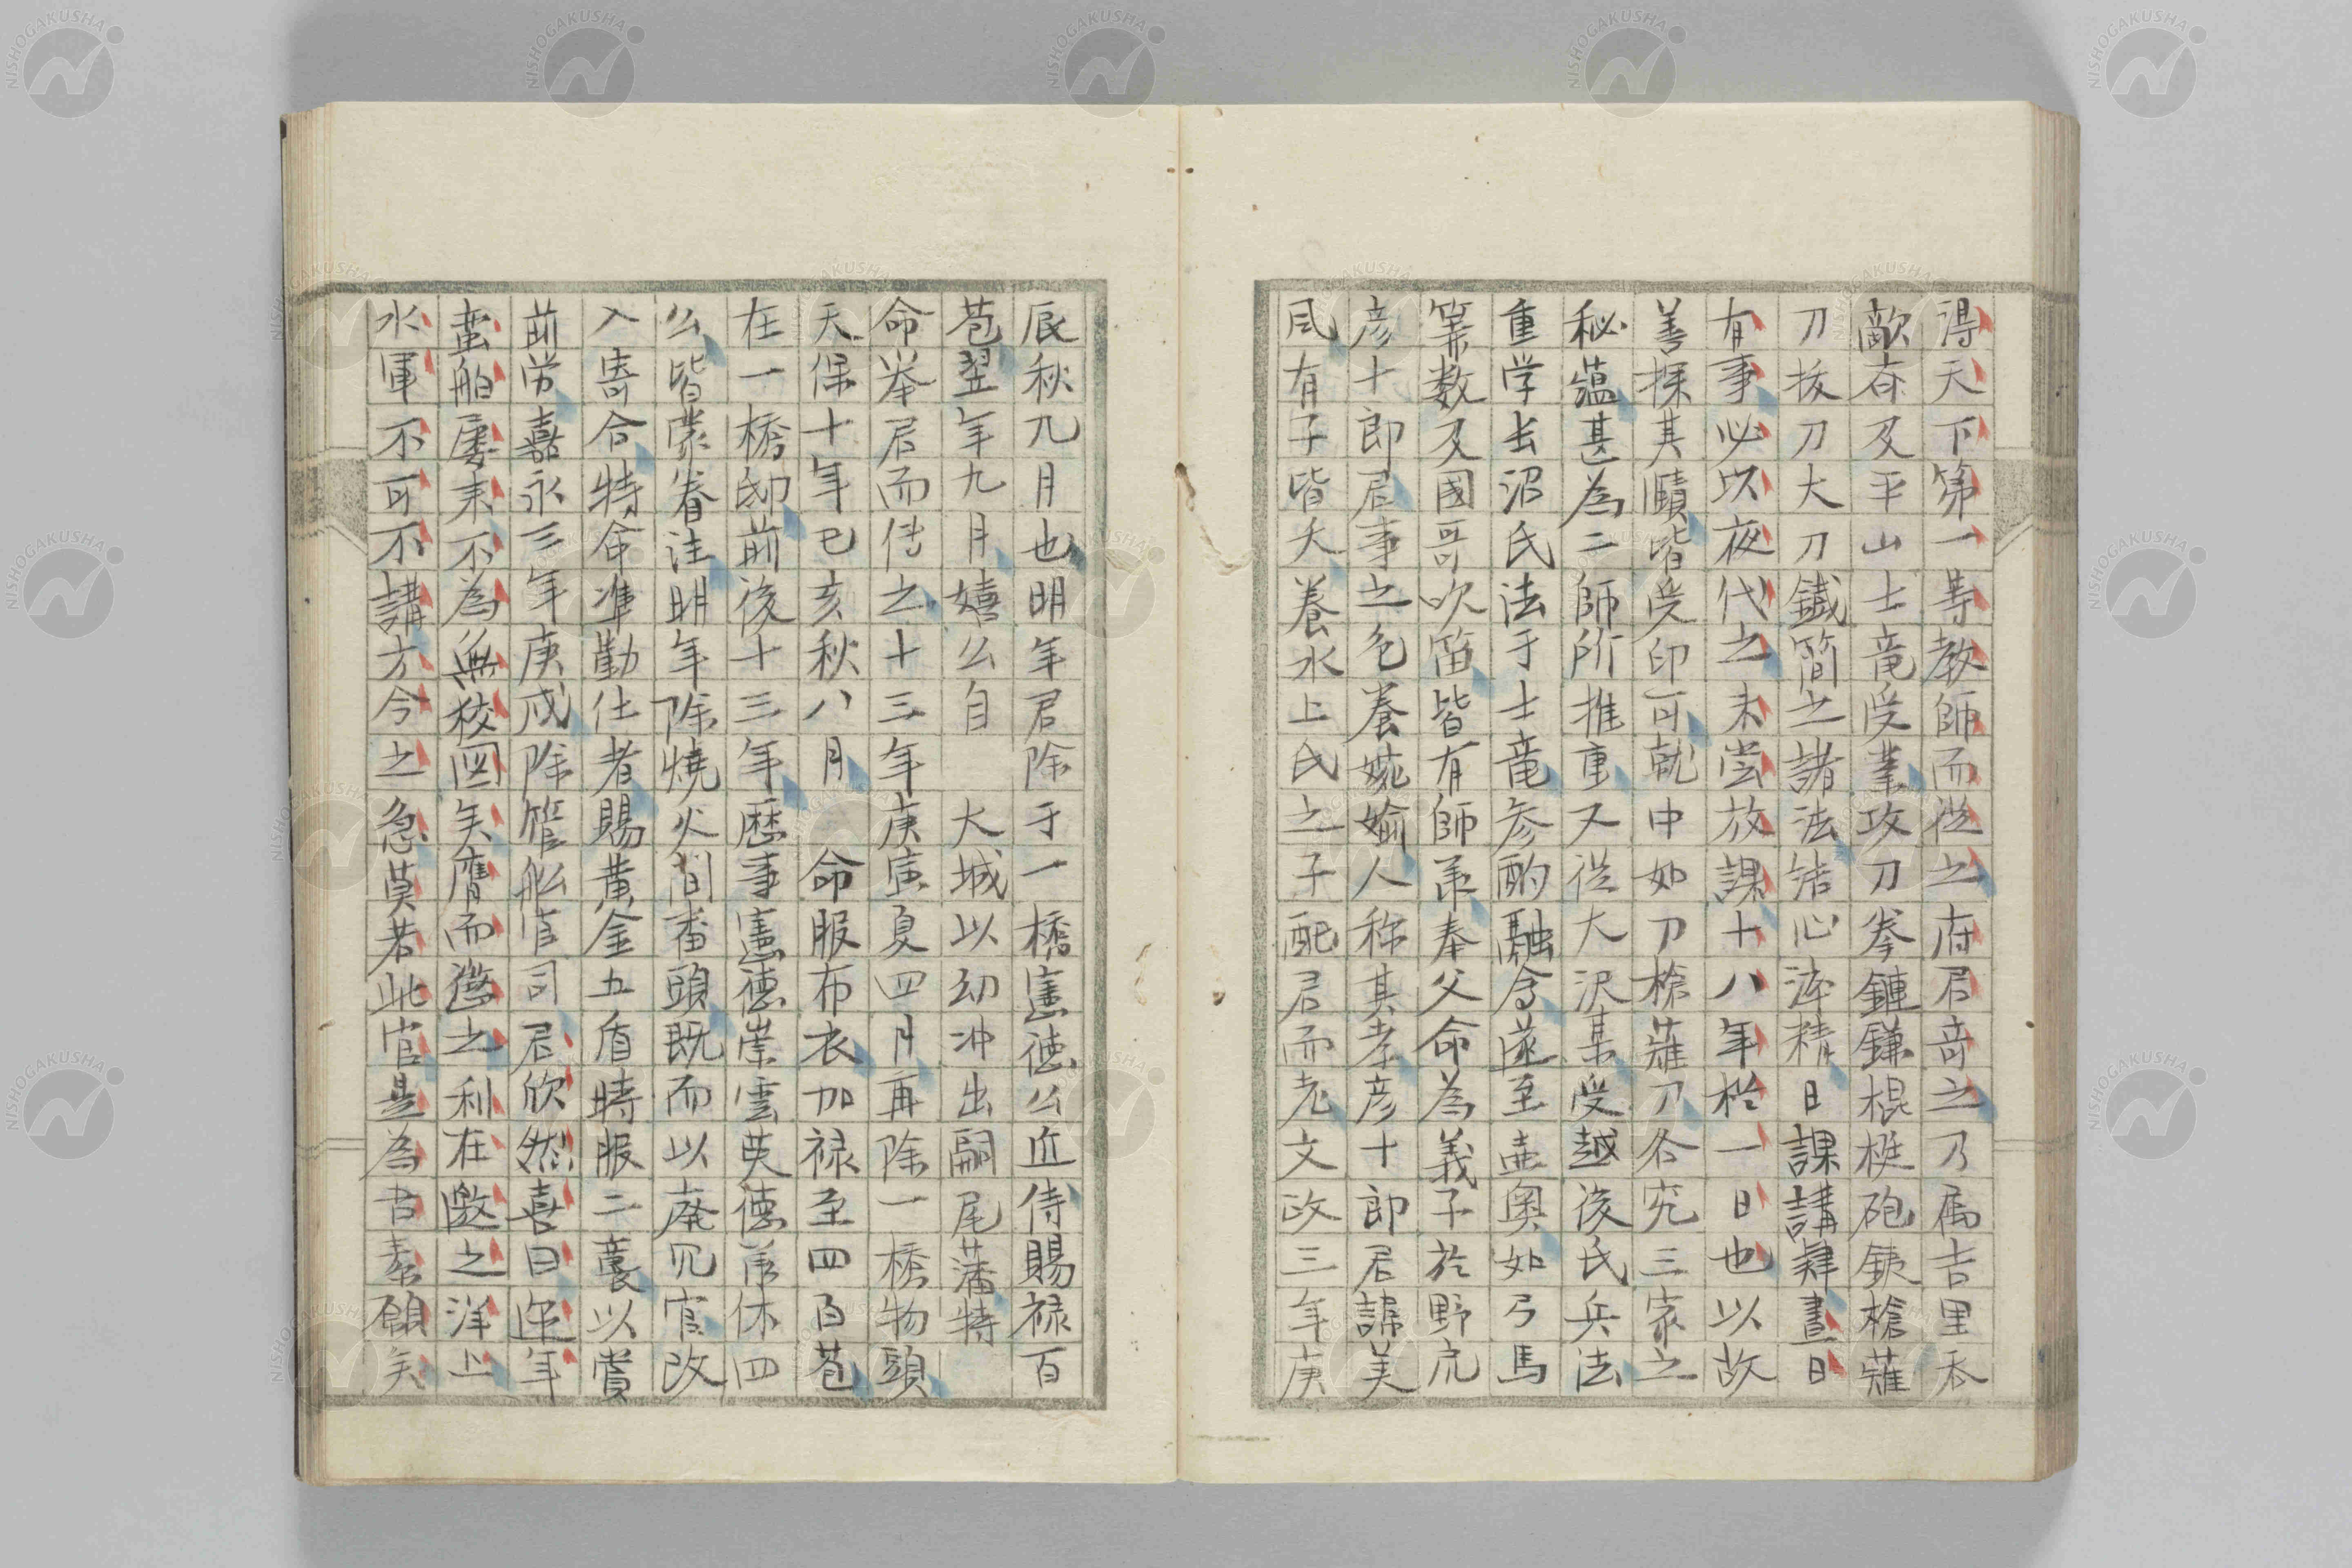 得天下第一等教師而從之府君奇之乃属吉里呑
敵斎及平山士竜受業攻刀拳鏈鎌棍梃砲銕槍薙
刀抜刀大刀鐵簡之諸法結心渾精日課講肄晝日
有事必以夜代之未尝放課十八年猶一日也以故
善探其賾皆受印可就中如刀槍薙刀各究三家之
秘蘊甚為二師所推重又從大沢某受越後氏兵法
重学长沼氏法于士竜参酌融會遂至壷奥如弓馬
筭數及國哥吹笛皆有師承奉父命為義子於野尻
彦十郎君事之色養婉愉人称其孝彦十郎君諱美
風有子皆夭養水上氏之子配君而老文政三年庚
辰秋九月也明年君除于一橋憲徳公近侍賜禄百
苞翌年九月嬉公自 大城以幼冲出嗣尾藩特
命举君而傅之十三年庚寅夏四月再除一橋物頭
天保十年己亥秋八月 命服布衣加禄至四百苞
在一橋邸前後十三年歴事憲徳崇雲英徳韋休四
公皆蒙眷注明年除燒火間番頭既而以廃冗官改
入寄合特命準勤仕者賜黄金五盾時服二襲以賞
前労嘉永三年庚戌除管船官司君欣然喜曰近年
蛮舶屡来不為無狡図矣膺而懲之利在邀之洋上
水軍不可不講方今之急莫若此官是為君素願矣